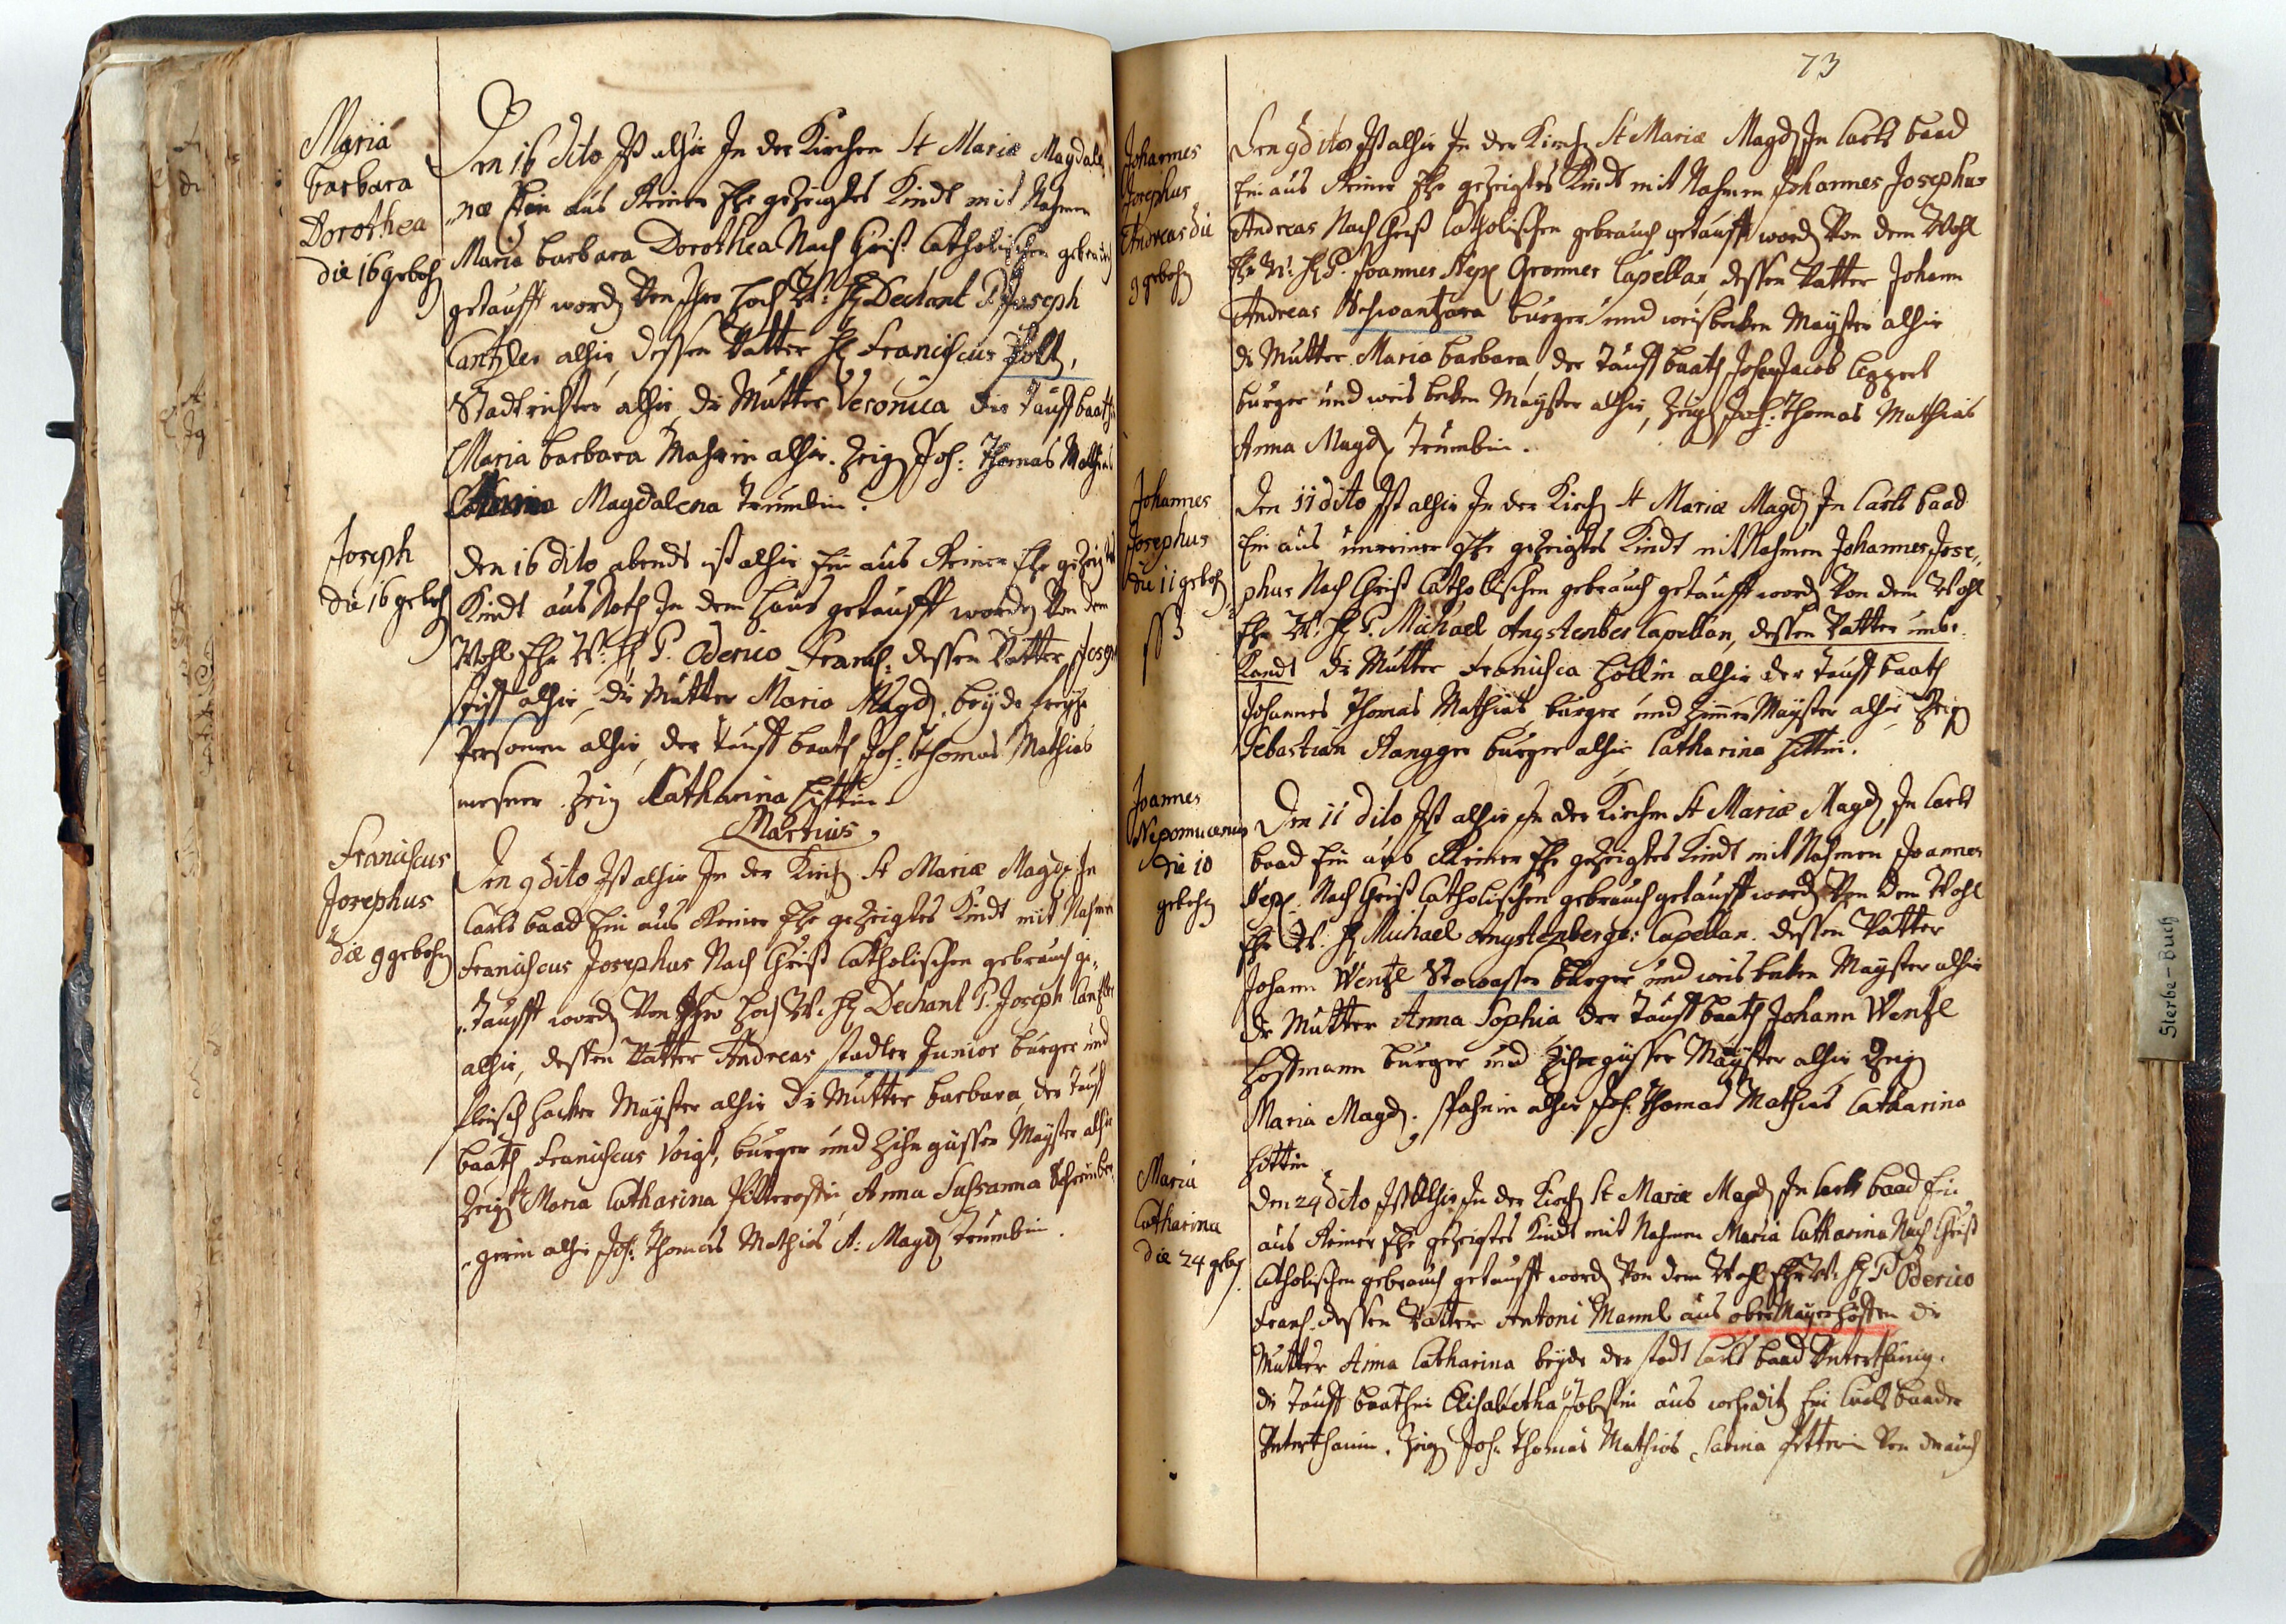 Maria
barbara
Dorothea
die 16 gebohr
Den 16 dito Ist alhir In der Kirchen St Mariæ Magdale
næ Ein aus Reiner Ehe gezeigtes Kindt mit Nahmen
Maria barbara Dorothea Nach Christ Catholischen gebrauch
getaufft word Von Ihro Hoch W: H Dechant P. Joseph
Cantzler alhir, dessen Vatter H Franciscus Poltz,
Stadtrichter alhir, di Mutter Veronica, die tauff baath
Maria barbara alhir. Zeig Joh: Thomas Mathias
Magdalena Trumbin.
Joseph
die 16 geboh
den 16 dito abends ist alhir Ein aus Reiner Ehe gezeigtes
Kindt aus Noth In dem Haus getaufft worden Von dem
Wohl Ehr W: H P. Oderico Franc: dessen Vatter Joseph
alhir, di Mutter Maria Magd. beyde freye
Personen alhir, der tauff baath Joh: Thomas Mathias
mesner. Zeig Catharina Hittin.
Martius
Franciscus
Josephus
die 9 gebohr
Den 9 dito Ist alhir In der Kirch St Mariæ Magd. In
Carls baad Ein aus Reiner Ehe gezeigtes Kindt mit Nahmen
Franciscus Josephus Nach Christ Catholischen gebrauch ge,,
,,taufft word Von Ihro Hoch W: H Dechant P. Joseph Cantzler
alhir, dessen Vatter Andreas Stadler Junior burger und
fleisch hacker Mayster alhir di Mutter barbara, der tauff
baath Franciscus Voigt, burger und Zihn güsser Mayster alhir
Zeig Maria Catharina Anna Sussanna
,,gerin alhir Joh: Thomas Mathias A: Magd Trumbin.
73
Johannes
Josephus
Andreas die
9 gebohr
Den 9 dito Ist alhir In der Kirch St Mariæ Magd In Carls baad
Ein aus Reiner Ehe gezeigtes Kindt mit Nahmen Johannes Josephus
Andreas Nach Christ Catholischen gebrauch getaufft word Von dem Wohl
Ehr W: H P. Joannes Nep Gronner Capellan, dessen Vatter Johann
Andreas Schwantzara burger und weisbecken Mayster alhir
di Mutter Maria barbara, der tauff baath Johan Jacob
burger und weis becken Mayster alhir, Zeig Joh: Thomas Mathias
Anna Magd Trumbin.
Johannes
Josephus
die 11 geboh
Den 11 dito Ist alhir In der Kirch St Mariæ Magd In Carls baad
Ein aus unreiner Ehe gezeigtes Kindt mit Nahmen Johannes Jose,,
phus Nach Christ Catholischen gebrauch getaufft word Von dem Wohl
Ehr W: H P. Michael Angstenber Capellan, dessen Vatter unbe,
Kandt di Mutter Francisca Höllin alhir der tauff baath
Johannes Thomas Mathias, burger und Zimer Mayster alhir Zeig
Sebastian burger alhir, Catharina Hittin.
Joannes
Nepomucenus
die 10
gebohr
Den 11 dito Ist alhir In der Kirchen St Mariæ Magd In Carls
baad Ein aus Reiner Ehe gezeigtes Kindt mit Nahmen Joannes
Nep. Nach Christ Catholischen gebrauch getaufft word Von dem Wohl
Ehr W: H Michael Angstenberger Capellan. dessen Vatter
Johann Wentzl Stowasser burger und weis becken Mayster alhir
di Mutter Anna Sophia der tauff baath Johann Wentzl
Hossmann burger und Zihn güsser Mayster alhir Zeig
Maria Magd. alhir Joh: Thomas Mathias Catharina
Hittin
Maria
Catharina
die 24 geboh
Den 24 dito Ist Alhir In der Kirch St Mariæ Magd In Carls baad Ein
aus Reiner Ehe gezeigtes Kindt mit Nahmen Maria Catharina Nach Christ
Catholischen gebrauch getaufft word Von dem Wohl Ehr W: H P Oderico
Franc. dessen Vatter Antoni Mannl aus ober Mayerhöffen di
Mutter Anna Catharina beyde der stadt Carls baad Unterthänig.
di tauff baathin Elisabetha Jobstin aus Ein Carls baader
Unterthanin. Zeig Joh: Thomas Mathias,
Sterbe-Buch